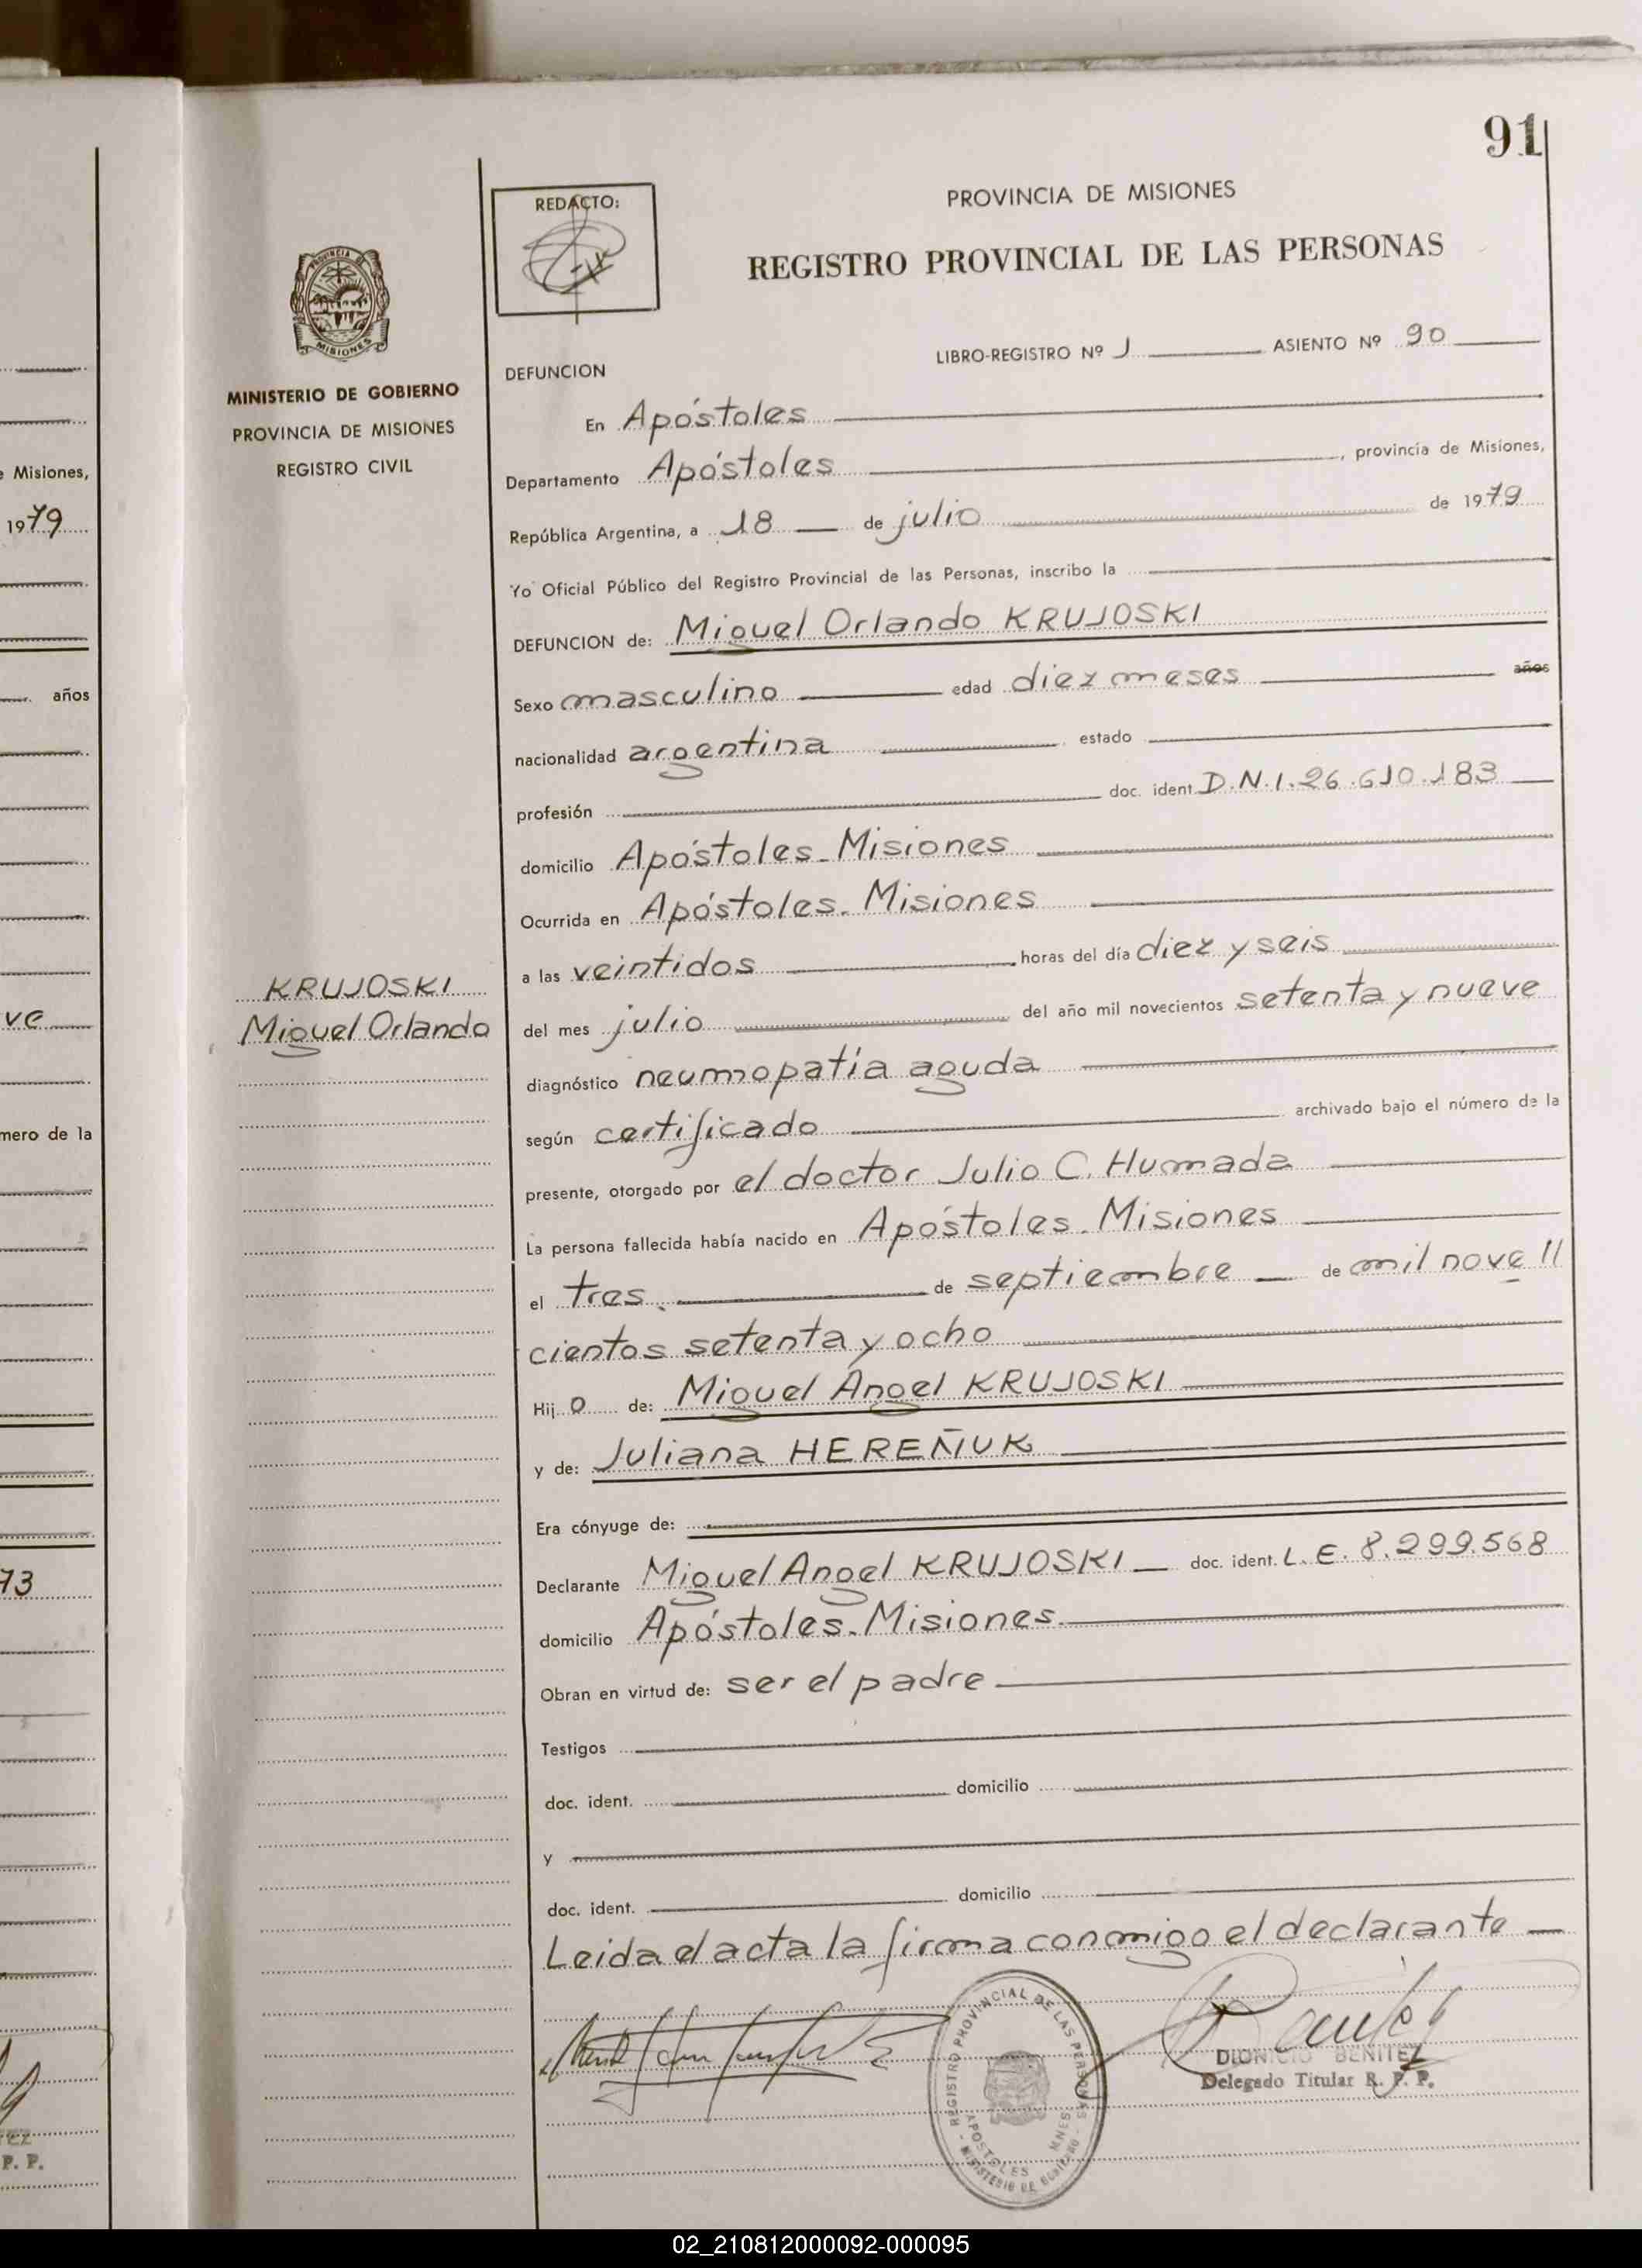 e Misiones,
1979
años
ve
mero de la
73
P. P.
91
PROVINCIA DE MISIONES
REGISTRO PROVINCIAL DE LAS PERSONAS
REDACTO:
PROVINCIA DE
MISIONES
MINISTERIO DE GOBIERNO
PROVINCIA DE MISIONES
REGISTRO CIVIL
LIBRO-REGISTRO Nº 1 ASIENTO Nº 90
DEFUNCION
En Apóstoles
Departamento Apóstoles, provincia de Misiones,
República Argentina, a 18 de julio de 1979
Yo Oficial Público del Registro Provincial de las Personas, inscribo la
DEFUNCION de: Miguel Orlando KRUJOSKI
Sexo masculino edad diez meses años
nacionalidad argentina estado
profesión doc. ident. D.N.I. 26.610.183
domicilio Apóstoles - Misiones
Ocurrida en Apóstoles - Misiones
a las veintidos horas del día diez y seis
KRUJOSKI
Miguel Orlando
del mes julio del año mil novecientos setenta y nueve
diagnóstico neumopatia aguda
según certificado archivado bajo el número de la
presente, otorgado por el doctor Julio C. Humada
La persona fallecida había nacido en Apóstoles - Misiones
el tres de septiembre de mil nove //
cientos setenta y ocho
Hijo de: Miguel Ángel KRUJOSKI
y de: Juliana HEREÑUK
Era cónyuge de:
Declarante Miguel Angel KRUJOSKI doc. ident. L.E. 8.299.568
domicilio Apóstoles - Misiones
Obran en virtud de: ser el padre
Testigos
doc. ident. domicilio
y
doc. ident. domicilio
Leida el acta la firma conmigo el declarante
REGISTRO PROVINCIAL DE LAS PERSONAS
APOSTOLES MNES
MINISTERIO DE GOBIERNO
DIONICIO BENITEZ
Delegado Titular R. P. P.
02_210812000092-000095